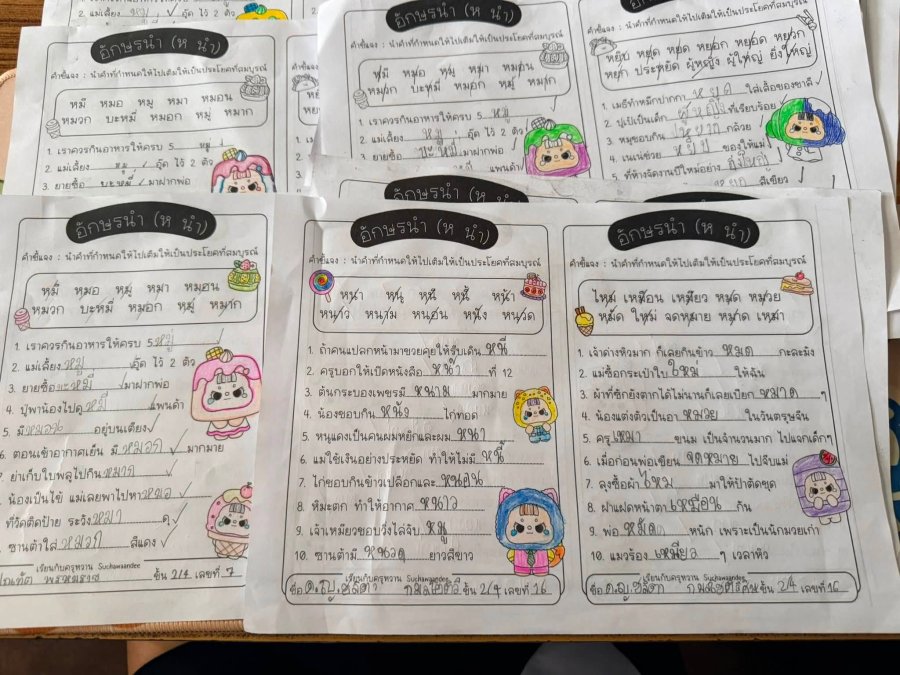 2. แม่เลี้ยง หมู อู๊ด ไว้ 2 ตัว
อักษรนำ (ห นำ)
คำชี้แจง : นำคำที่กำหนดให้ไปเติมให้เป็นประโยคที่สมบูรณ์
หมี หมอ หมู หมา หมอน
หมวก บะหมี่ หมอก หมู่ หมาก
1. เราควรกินอาหารให้ครบ 5 หมู่
2. แม่เลี้ยง หมู อู๊ด ไว้ 2 ตัว
3. ยายซื้อ บะหมี่ มาฝากพ่อ
อักษรนำ (ห นำ)
คำชี้แจง : นำคำที่กำหนดให้ไปเติมให้เป็นประโยคที่สมบูรณ์
หมี หมอ หมู หมา หมอน
หมวก บะหมี่ หมอก หมู่ หมาก
1. เราควรกินอาหารให้ครบ 5 หมู่
2. แม่เลี้ยง หมู อู๊ด ไว้ 2 ตัว
3. ยายซื้อ บะหมี่ มาฝากพ่อ
แพนด้า
คำชี้แจง : นำคำที่กำหนดให้ไปเติมให้เป็นประโยคที่สมบูรณ์
หยิบ หยุด หยด หยอก หยอด หยวก
หยก ประหยัด ผู้หญิง ผู้ใหญ่ ยิ่งใหญ่
1. เมธีทำหมึกปากกา หยด ใส่เสื้อของชาลี
2. ปูเป้เป็นเด็ก ผู้หญิง ที่เรียบร้อย
3. หมูชอบกิน หยวก กล้วย
4. เนเน่ช่วย หยิบ ของให้แม่
5. ที่ห้างจัดงานปีใหม่อย่าง ยิ่งใหญ่
หยก สีเขียว
อักษรนำ (ห นำ)
คำชี้แจง : นำคำที่กำหนดให้ไปเติมให้เป็นประโยคที่สมบูรณ์
หมี หมอ หมู หมา หมอน
หมวก บะหมี่ หมอก หมู่ หมาก
1. เราควรกินอาหารให้ครบ 5 หมู่
2. แม่เลี้ยง หมู อู๊ด ไว้ 2 ตัว
3. ยายซื้อ บะหมี่ มาฝากพ่อ
4. ปู่พาน้องไปดู หมี แพนด้า
5. มี หมอน อยู่บนเตียง
6. ตอนเช้าอากาศเย็น มี หมอก มากมาย
7. ย่าเก็บใบพลูไปกิน หมาก
น้องเป็นไข้ แม่เลยพาไปหา หมอ
ที่วัดติดป้าย ระวัง หมา ดุ
ซานต้าใส่ หมวก สีแดง
เรียนกับครูหวาน Suchawaandee
ชั้น 2/4 เลขที่ 7
อักษรนำ (ห นำ)
คำชี้แจง : นำคำที่กำหนดให้ไปเติมให้เป็นประโยคที่สมบูรณ์
หนา หนู หนี หนี้ หน้า
หนาว หนาม หนอน หนัง หนวด
1. ถ้าคนแปลกหน้ามาชวยคุยให้รีบเดิน หนี
2. ครูบอกให้เปิดหนังสือ หน้า ที่ 12
3. ต้นกระบองเพชรมี หนาม มากมาย
4. น้องชอบกิน หนัง ไก่ทอด
5. หนูแดงเป็นคนผมหยิกและผม หนา
6. แม่ใช้เงินอย่างประหยัด ทำให้ไม่มี หนี้
7. ไก่ชอบกินข้าวเปลือกและ หนอน
8. หิมะตก ทำให้อากาศ หนาว
9. เจ้าเหมียวชอบวิ่งไล่จับ หนู
10. ซานต้ามี หนวด ยาวสีขาว
เรียนกับครูหวาน Suchawaandee
ชื่อ ด.ญ. ชั้น 2/4 เลขที่ 16
อักษรนำ (ห นำ)
คำชี้แจง : นำคำที่กำหนดให้ไปเติมให้เป็นประโยคที่สมบูรณ์
ไหม เหมือน เหมียว หมด หมวย
หมัด ใหม่ จดหมาย หมาด เหมา
1. เจ้าด่างหิวมาก ก็เลยกินข้าว หมด กะละมัง
2. แม่ซื้อกระเป๋าใบ ใหม่ ให้ฉัน
3. ผ้าที่ซักยังตากได้ไม่นานก็เลยเปียก หมาด ๆ
4. น้องแต่งตัวเป็นอา หมวย ในวันตรุษจีน
5. ครู เหมา ขนม เป็นจำนวนมาก ไปแจกเด็กๆ
6. เมื่อก่อนพ่อเขียน จดหมาย ไปจีบแม่
7. ลุงซื้อผ้า ไหม มาให้ป้าตัดชุด
8. ฝาแฝดหน้าตา เหมือน กัน
9. พ่อ หมัด หนัก เพราะเป็นนักมวยเก่า
10. แมวร้อง เหมียว ๆ เวลาหิว
เรียนกับครูหวาน Suchawaandee
ชื่อ ด.ญ. ชั้น 2/4 เลขที่ 16